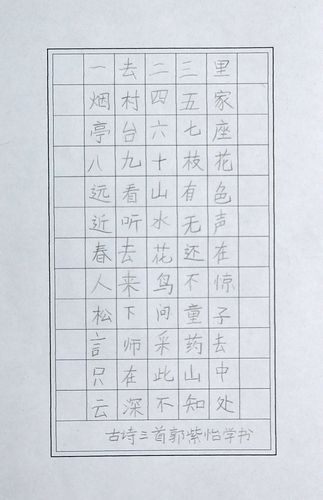 一去二三里
烟村四五家
亭台六七座
八九十枝花
远看山有色
近听水无声
春去花还在
人来鸟不惊
松下问童子
言师采药去
只在此山中
云深不知处
古诗三首郭紫怡学书